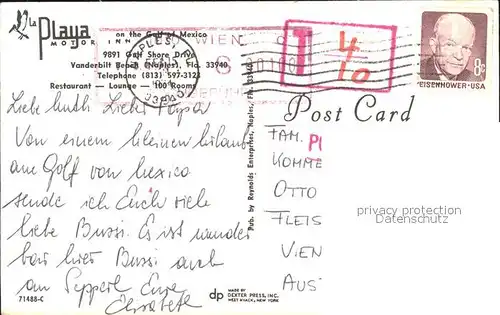 La Playa
MOTOR INN
on the Gulf of Mexico
9891 Gulf Shore Drive
Vanderbilt Beach (Naples), Fla. 33940
Telephone (813) 597-3123
Restaurant — Lounge — 100 Rooms
WIEN
NAPLES,
T 4/10
8c
EISENHOWER·USA
Post Card
Liebe Mutti Lieber
Von einem kleinen Urlaub
am Golf von Mexico
sende ich Euch viele
liebe Bussi. Es ist wunder
bar hier Bussi auch
an Pepperl Eure
Elisabeth
Pub. by Reynolds Enterprises, Naples, Fla. 33940
FAM.
KOMME
OTTO
FLEIS
VIEN
AUS
privacy protection
Datenschutz
71488-C
dp MADE BY
DEXTER PRESS, INC.
WEST NYACK, NEW YORK